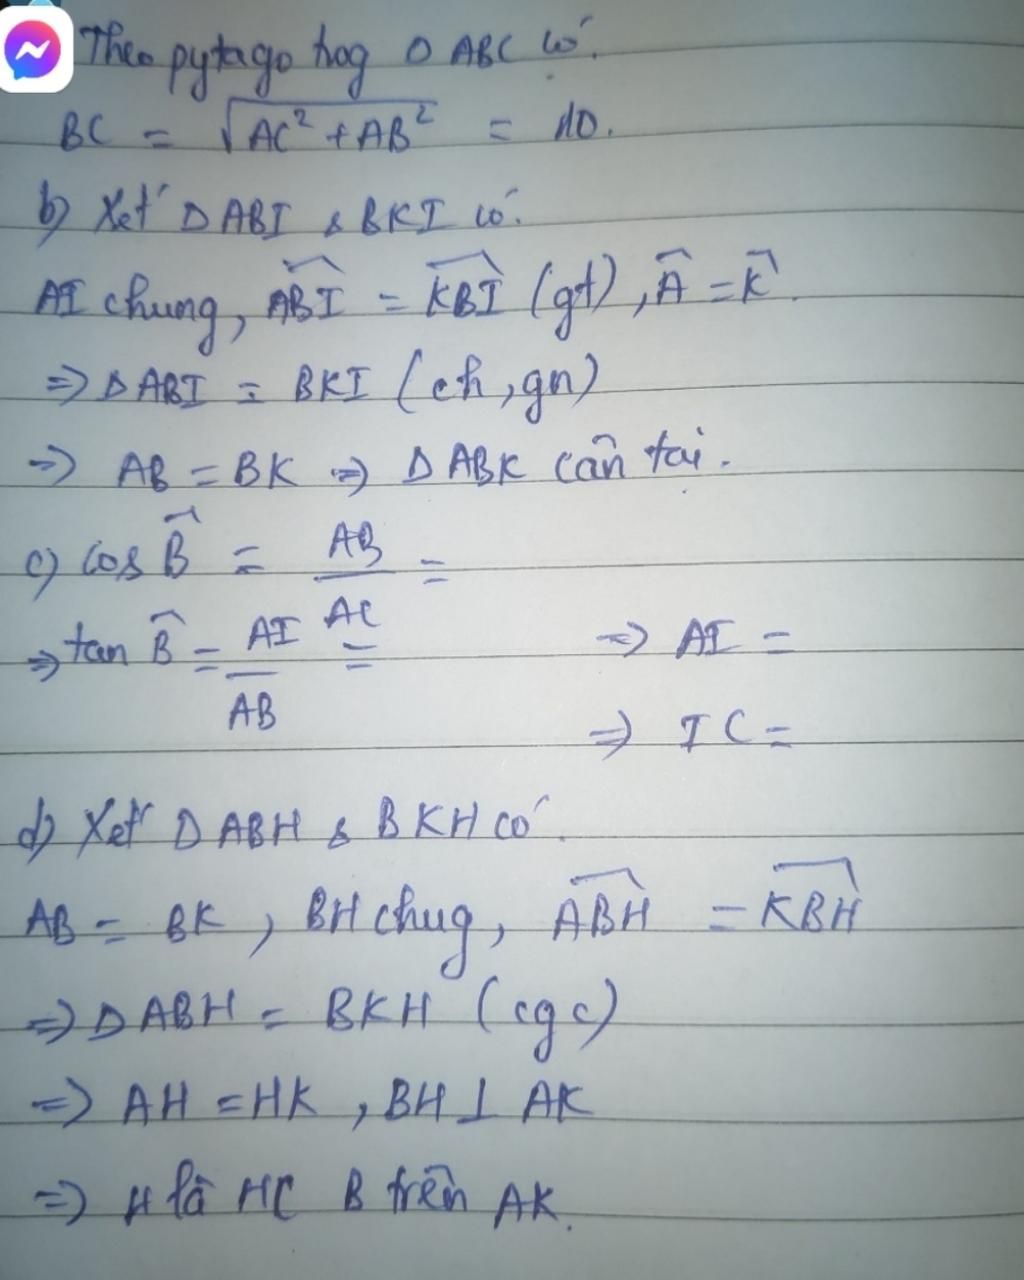 Theo pytago hog Δ ABC có.
BC = √AC² + AB² = 10.
b) Xét Δ ABI & BKI có.
AI chung, ABI = KBI (gt), A = K.
=> Δ ABI = BKI (ch, gn)
=> AB = BK => Δ ABK cân tại.
c) cos B = AB/AC =
=> tan B = AI/AB = => AI =
=> IC =
d) Xét Δ ABH & BKH có.
AB = BK, BH chug, ABH = KBH
=> Δ ABH = BKH (cgc)
=> AH = HK, BH ⊥ AK
=> H là HC B trên AK.